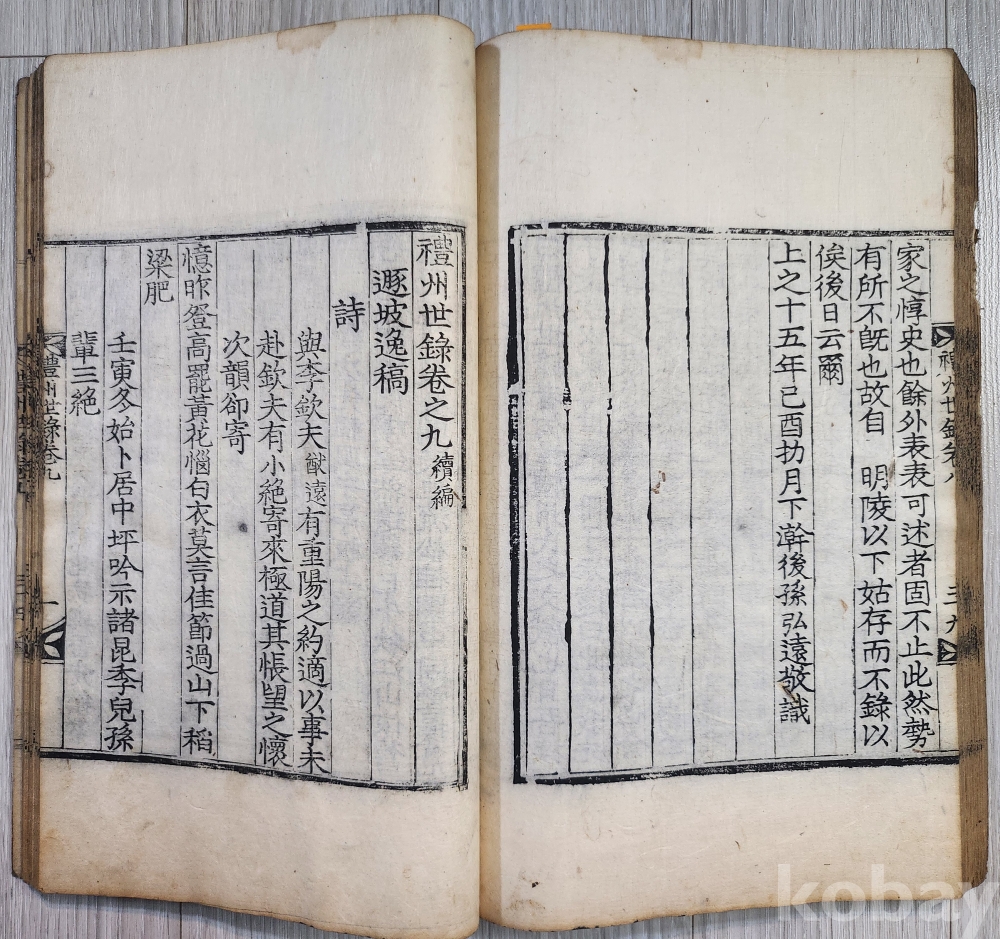 家之惇史也餘外表表可述者固不止此然勢
有所不旣也故自　明陵以下姑存而不錄以
俟後日云爾
上之十五年己酉扐月下澣後孫弘遠敬識
禮州世錄卷之九續編
遯坡逸稿
詩
與李欽夫猷遠有重陽之約適以事未
赴欽夫有小絶寄來極道其悵望之懷
次韻卻寄
憶昨登高罷黃花惱白衣莫言佳節過山下稻
粱肥
壬寅冬始卜居中坪吟示諸昆季兒孫
輩三絶
禮州世錄卷九
一
kobay